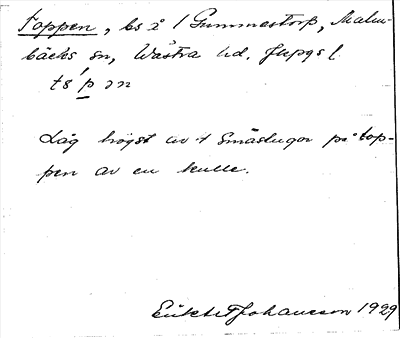 Toppen, bs å 1 Gummestorp, Malm-
bäcks sn, Västra hd. Jkpgs l.
Låg högst av 4 småstugor på top-
pen av en kulle.
Johansson 1929